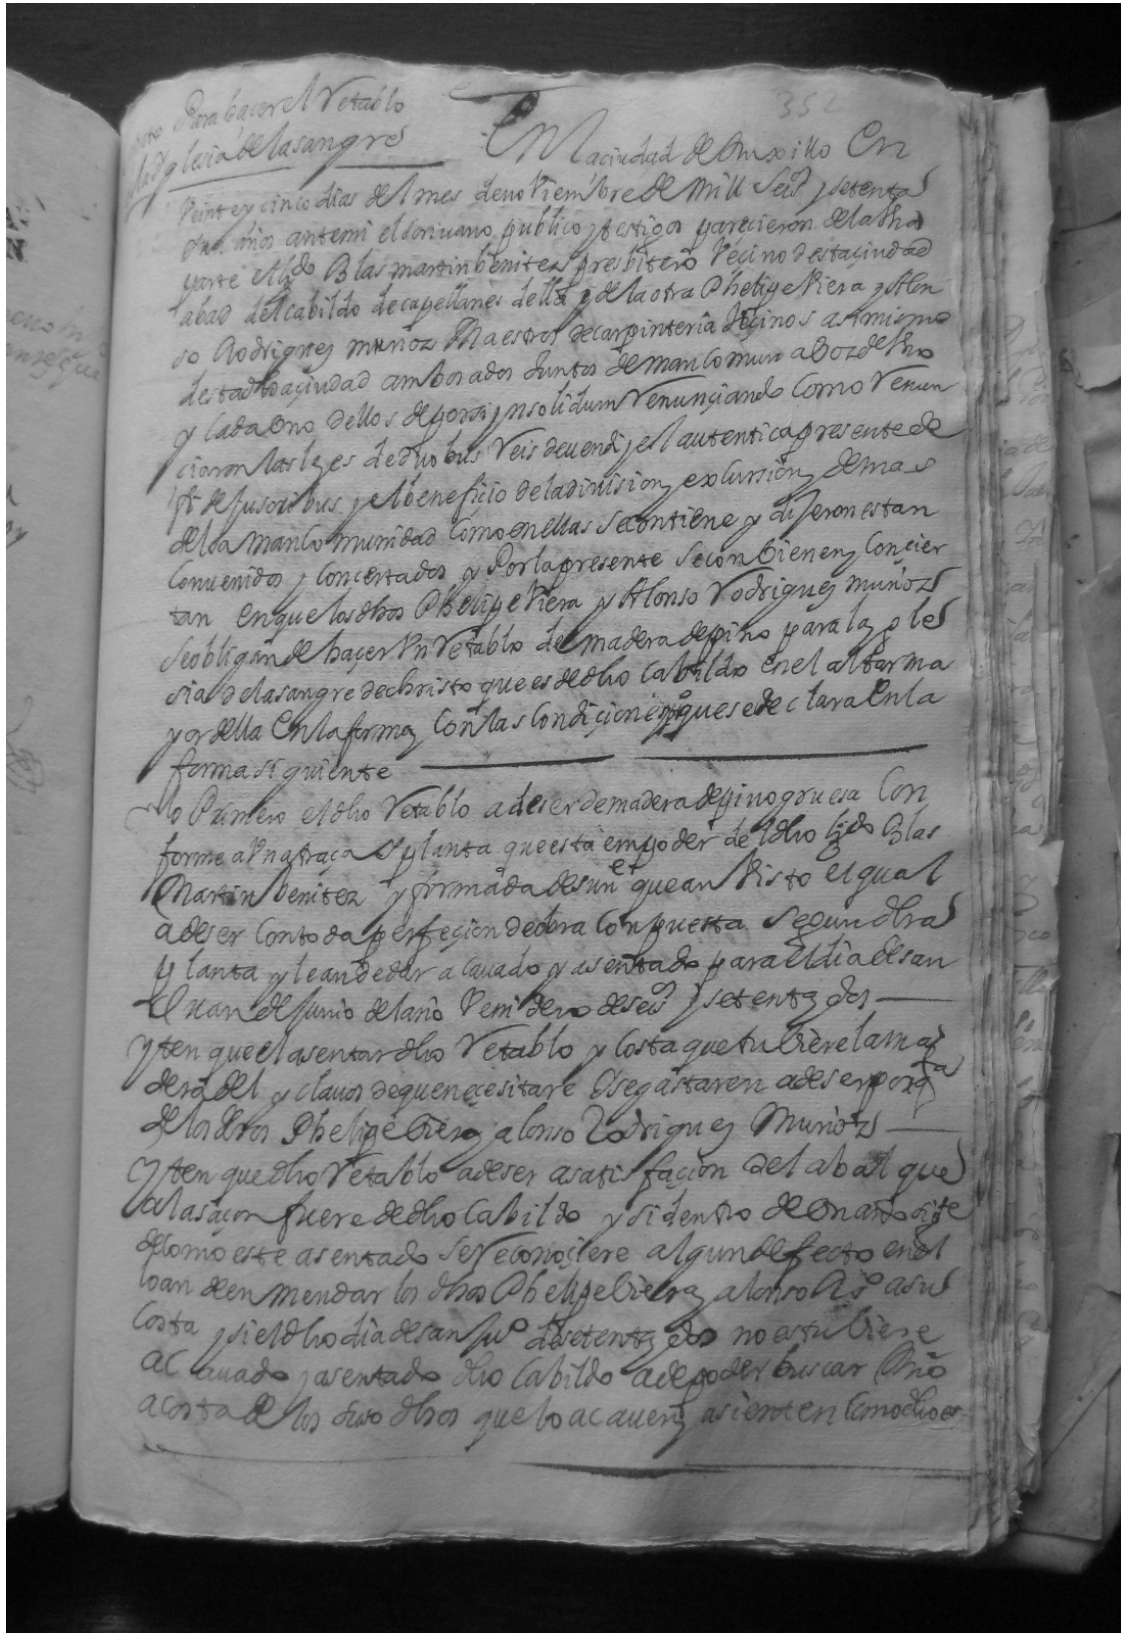 Para haçer el Retablo
de la yglesia de la sangre
352
En la ciudad de Truxillo En
Veinte y cinco dias del mes de noviembre de mill Seisº y setenta
años ante mi el scrivano publico y testigos parecieron de la Una
parte el lizdo Blas martin benitez presbitero Veçino desta çiudad
abad del cabildo de capellanes della y de la otra Phelipe Viera y Alon
so Rodrigues muñoz Maestros de carpinteria Veçinos asimismo
desta dha çiudad ambos a dos Juntos de mancomun a Boz de Uno
y Cada Uno dellos de por si ynsolidum Renunçiando como Renun
ciaron las leyes de duobus Reis devendi y el autentica presente de
fide jusoribus y el beneficio de la division y excursion y demas
de la mancomunidad Como en ellas se contiene y dijeron estan
Convenidos y Concertados y Por la presente se conbienen y Concier
tan en que los dhos Phelipe Viera y Alonso Rodrigues muñoz
se obligan de haçer Un Retablo de madera de pino para la ygle
sia de la sangre de christo que es de dho Cabildo en el altar ma
yor della En la forma y Con las Condiçiones que se declara En la
forma siguiente
lo Primero el dho Retablo a de ser de madera de pino gruesa Con
forme a Una traça y planta que esta em poder del dho lizdo Blas
Martin benitez y firmada de su que an Visto el qual
a de ser con toda perfeçion de obra Conpuesta Segun dha
planta y le an de dar acavado y asentado para el dia de san
Juan de Junio del año Venidero de seisº y setenta y dos
yten que el asentar dho Retablo y Costa que tubiere la ma
dera del y clavos de que necesitare Use gastaren a de ser por qta
de los dhos Phelipe Viera y alonso Rodrigues Muñoz
yten que dho Retablo a de ser a satisfaçion del abad que
a la saçon fuere de dho Cabildo y si dentro de Un año sigte
de como este asentado se Reconoçiere algun defecto en el
lo an de enmendar los dhos Phelipe Viera y alonso Rºs a su
Costa y si el dho dia de san Juº de setenta y dos no estubiere
acavado y asentado dho Cabildo a de poder buscar
a costa de los suso dhos que lo acaven y asienten Como dho es